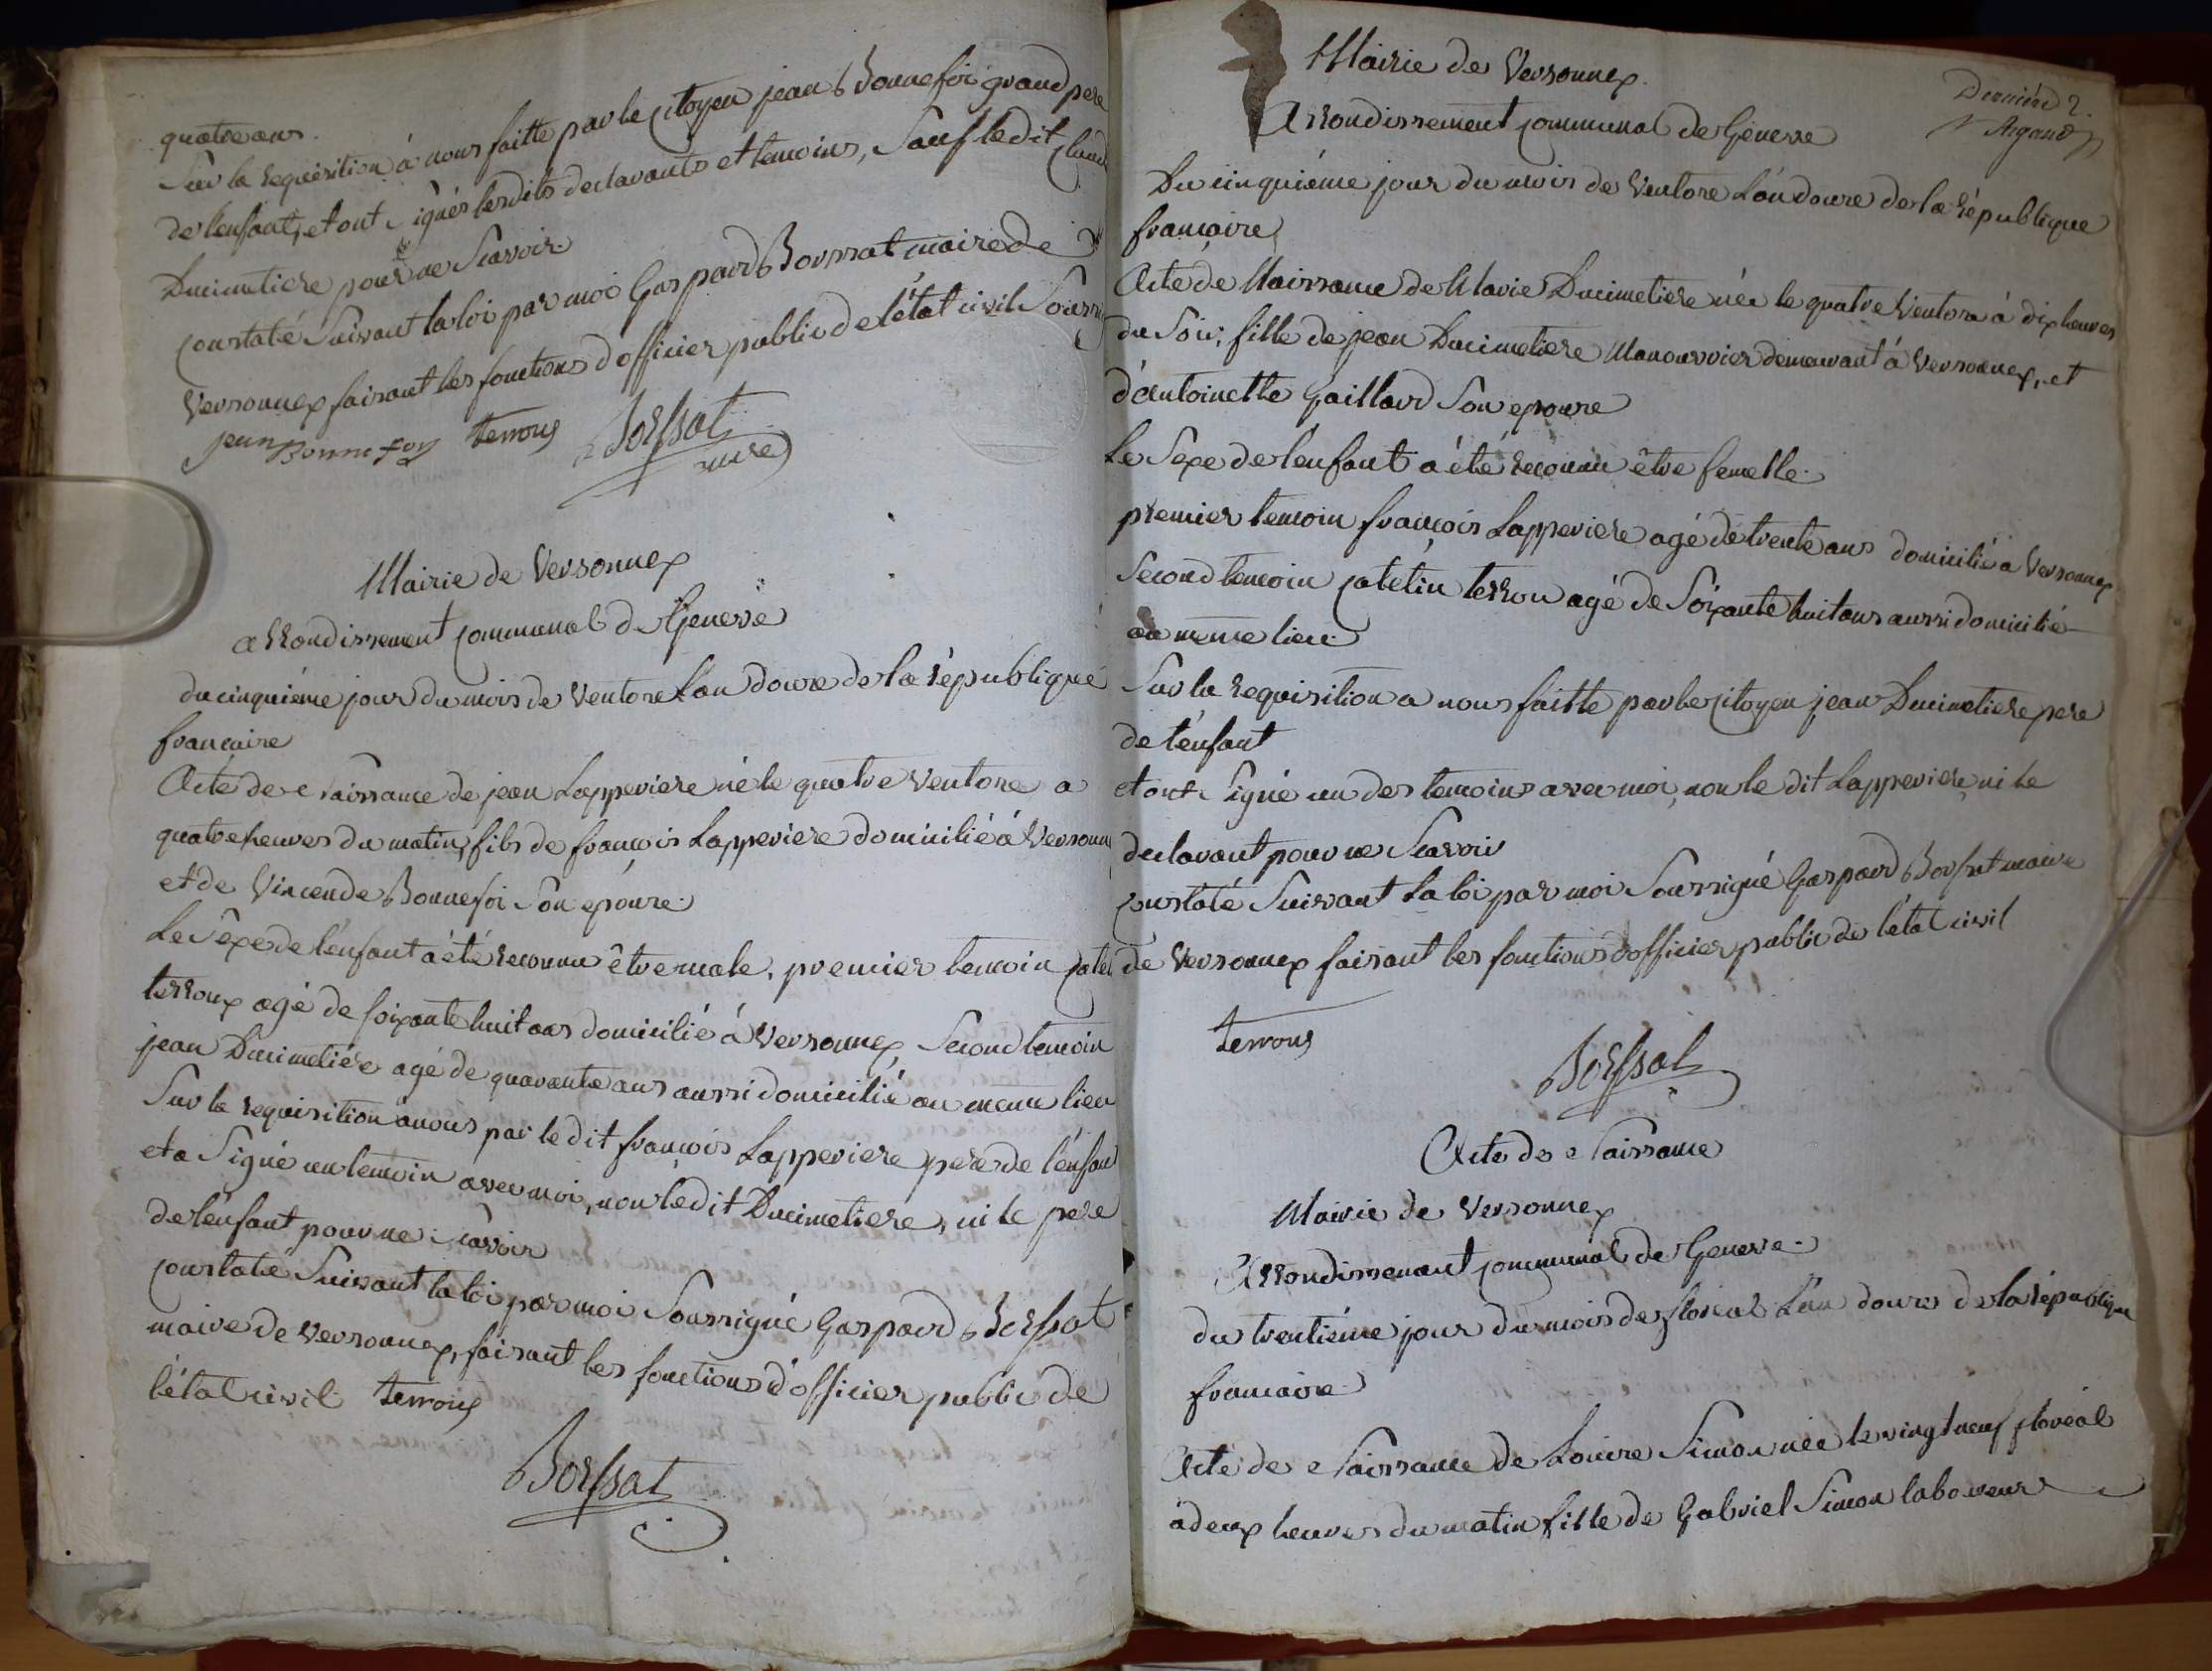 quatre ans.
Sur la requisition à nous faitte par le citoyen jean Bonnefoi grand pere
de l'enfant, et ont signés lesdits declarants et temoins, Sauf ledit
Ducimetiere pour ne Scavoir
constaté Suivant la loi par moi Gaspard Boussat maire de
Versonnex faisant les fonctions d'officier public de l'état civil Soussi
jean Bonnefoy terroux Borssat
maire
Mairie de Versonnex
arrondissement communal de Geneve
du cinquiéme jour du mois de Ventose L'an douze de la république
francaise
Acte de Naissance de jean Lapperiere né le quatre Ventose a
quatre heures du matin, fils de françois Lapperiere domicilié à Versonn
et de Vincende Bonnefoi Son epouse
Le Sexe de l'enfant a été reconnu être male, premier temoin
terroux agé de soixante huit ans domicilié à Versonnex Second temoin
jean Ducimetiére agé de quarante ans aussi domicilié au meme lieu
Sur la requisition a nous par le dit françois Lapperiere pere de l'enfan
et a Signé un temoin avec moi, non ledit Ducimetiere, ni le pere
de l'enfant pour ne scavoir
constaté Suivant la loi par moi Soussigné Gaspard Borssat
maire de Versonnex, faisant les fonctions d'officier public de
l'état civil terroux
Borssat
Mairie de Versonnex
Arrondissement communal de Geneve
Du cinquiéme jour du mois de Ventose L'an douze de la république
francaise
Acte de Naissance de Marie Ducimetiere née le quatre Ventose à dix heures
du Soir, fille de jean Ducimetiere Manouvrier demeurant à Versonnex, et
d'antoinette Gaillard Son epouse
Le Sexe de l'enfant a été reconnu être femelle
premier temoin françois Lapperiere agé de trente ans domicilié a Versonnex
Second temoin catelin terroux agé de Soixante huit ans aussi domicilié
au meme lieu
Sur la requisition a nous faitte par le citoyen jean Ducimetiere pere
de l'enfant
et ont Signé un des temoins avec moi, non le dit Lapperiere ni le
declarant pour ne Scavoir
constaté Suivant la loi par moi Soussigné Gaspard Borssat maire
de Versonnex faisant les fonctions d'officier public de l'état civil
terroux
Borssat
Acte de Naissance
Mairie de Versonnex
Arrondissement communal de Geneve
du trentiéme jour du mois de floréal L'an douze de la république
francaise
Acte de Naissance de Louise Simon née le vingt neuf floréal
à deux heures du matin fille de Gabriel Simon laboureur